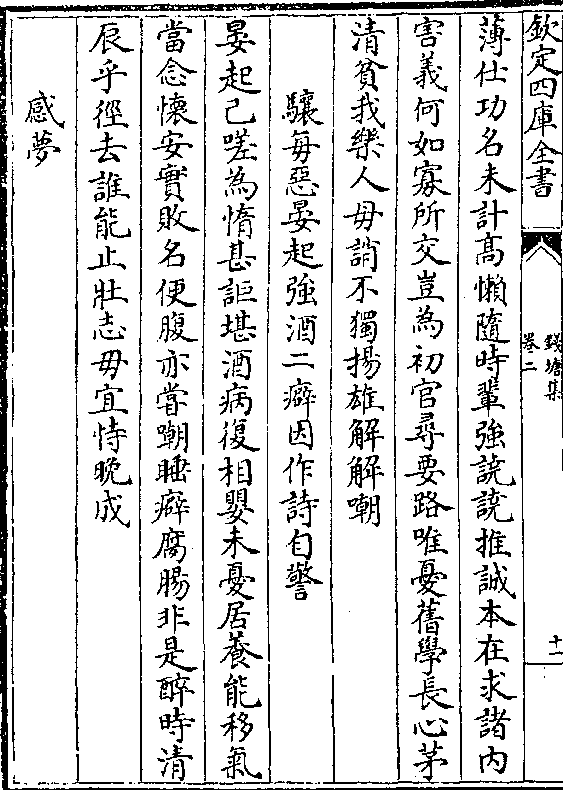 欽定四庫全書
錢塘集
卷二
十一
薄仕功名未計髙懶隨時輩強譊譊推誠本在求諸内
害義何如寡所交豈為初官尋要路唯憂舊學長心茅
清貧我樂人毋誚不獨揚雄解解嘲
驤毎惡晏起強酒二癖因作詩自警
晏起已嗟為惰甚詎堪酒病復相嬰未憂居養能移氣
當念懷安實敗名便腹亦嘗嘲睡癖腐腸非是醉時清
辰乎徑去誰能止壯志毋宜恃晩成
感夢